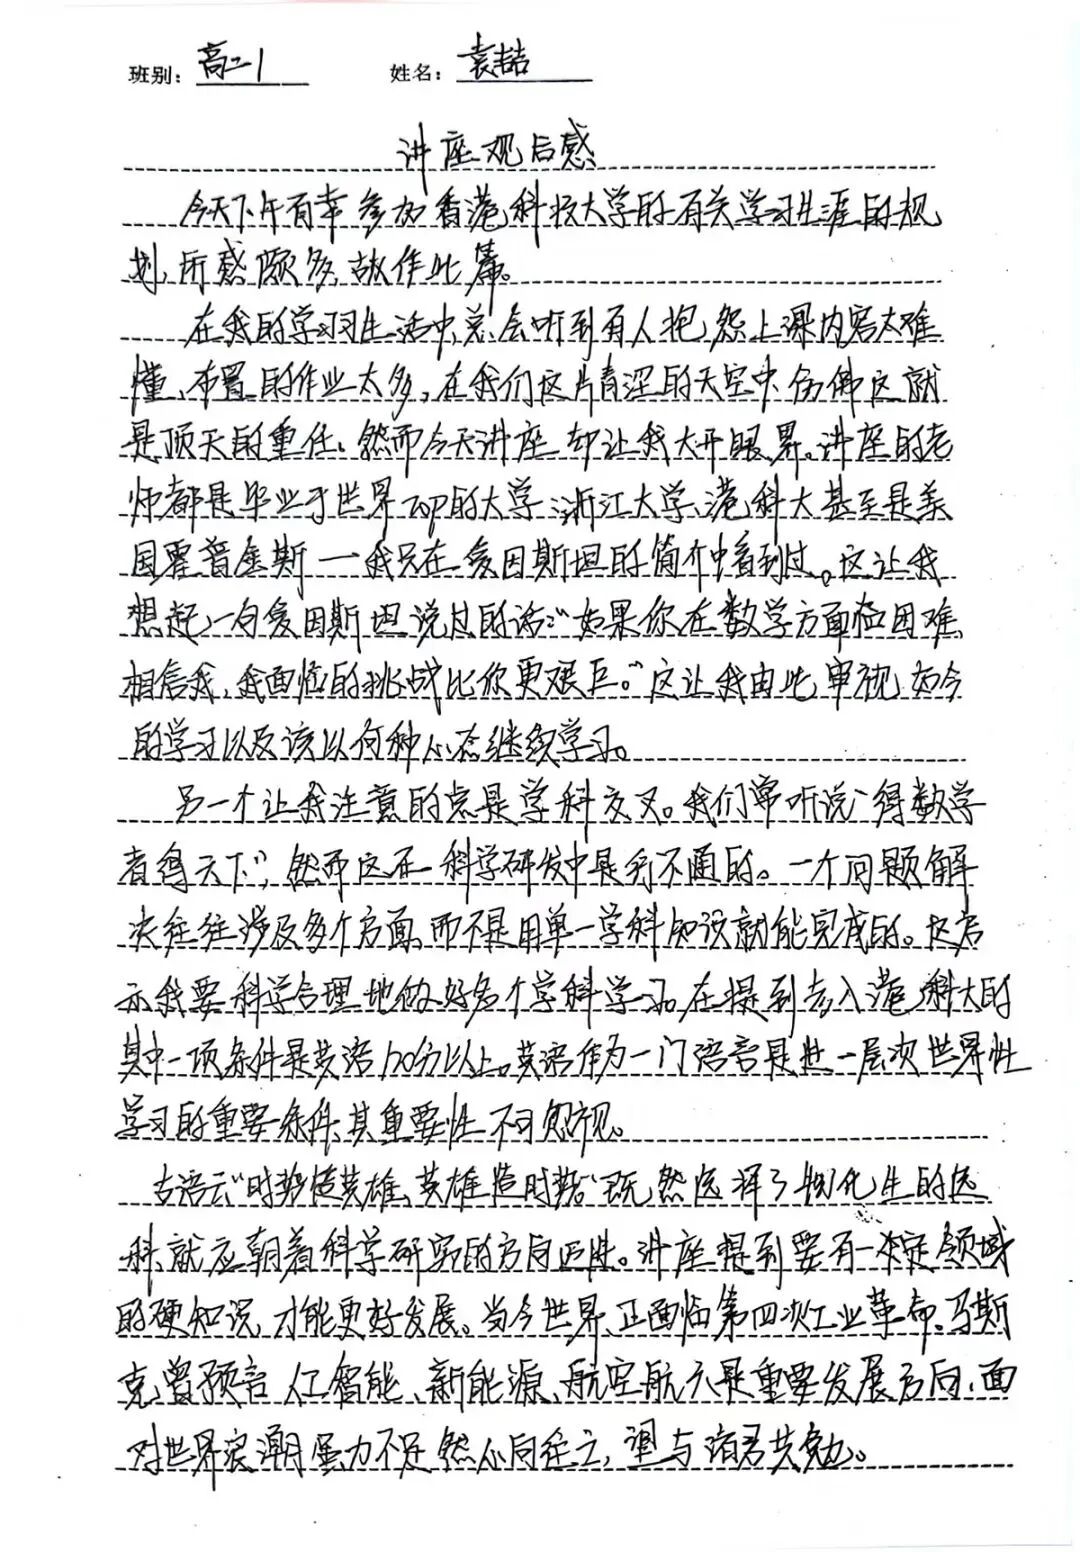 班别: 高二1 姓名: 袁喆
讲座观后感
今天下午有幸参加香港科技大学的有关学习生涯的规
划,所感颇多,故作此篇。
在我的学习生活中,总会听到有人抱怨上课内容太难
懂、布置的作业太多,在我们这片青涩的天空中,仿佛这就
是顶天的重任。然而今天讲座,却让我大开眼界。讲座的老
师都是毕业于世界Top的大学:浙江大学、港科大甚至是美
国霍普金斯一我只在爱因斯坦的简介中看到过。这让我
想起一句爱因斯坦说过的话:“如果你在数学方面临困难,
相信我,我面临的挑战比你更艰巨。”这让我由此审视如今
的学习以及该以何种心态继续学习。
另一个让我注意的点是学科交叉。我们常听说“得数学
者得天下”,然而这在科学研发中是行不通的。一个问题解
决往往涉及多个方面,而不是用单一学科知识就能完成的。这启
示我要科学合理地做好多个学科学习。在提到考入港科大的
其中一项条件是英语120分以上。英语作为一门语言是进一层次世界性
学习的重要条件,其重要性不可忽视。
古语云“时势造英雄,英雄造时势”既然选择了物化生的选
科,就应朝着科学研究的方向迈进。讲座提到要有一定领域
的硬知识,才能更好发展。当今世界,正面临第四次工业革命,马斯
克曾预言人工智能、新能源、航空航天是重要发展方向,面
对世界浪潮虽力不足,然心向往之,望与诸君共勉。